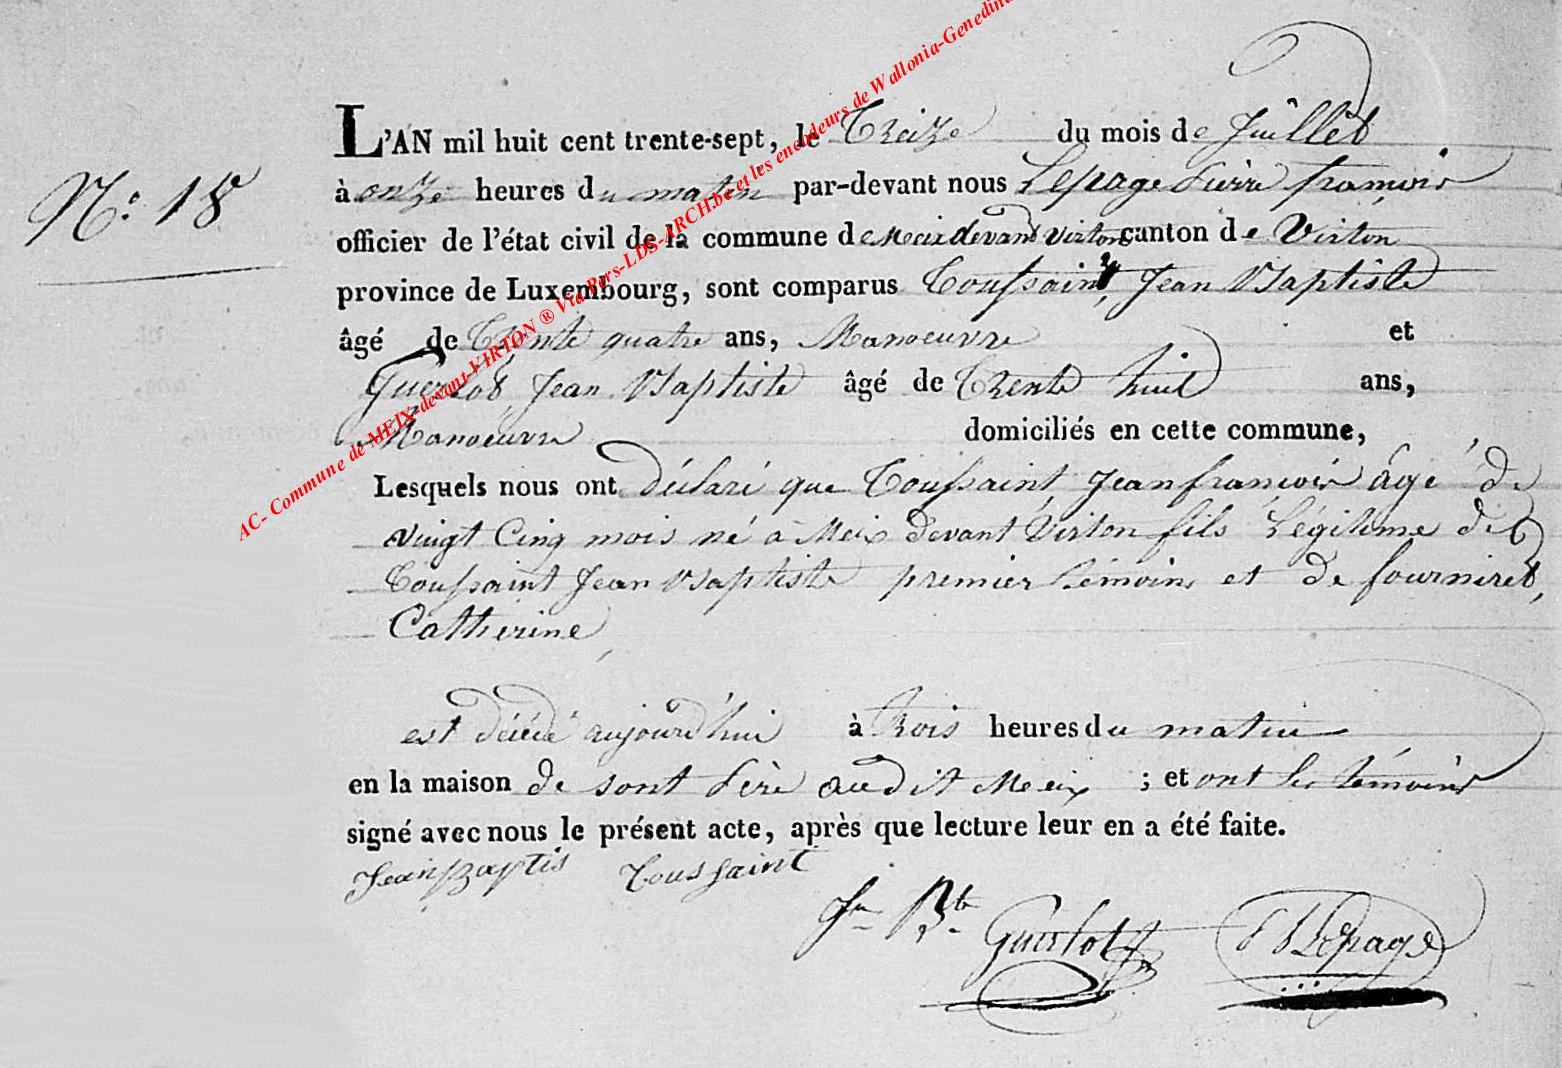 L'AN mil huit cent trente-sept, le Treize du mois de Juillet
N.º 18
à onze heures du matin par-devant nous Lepage Pierre françois
officier de l'état civil de la commune de Meix devant Virton canton de Virton
province de Luxembourg, sont comparus Toussaint, Jean Baptiste
âgé de Trente quatre ans, Manoeuvre et
Guerlot, Jean Baptiste âgé de Trente huit ans,
Manoeuvre domiciliés en cette commune,
Lesquels nous ont déclaré que Toussaint, Jean françois âgé de
vingt Cinq mois né à Meix devant Virton fils Légitime de
Toussaint Jean Baptiste premier témoins et de fourniret,
Catherine
est décédé aujourd'hui à trois heures du matin
en la maison de sont Père audit Meix ; et ont les témoins
signé avec nous le présent acte, après que lecture leur en a été faite.
Jean Baptis Toussaint
Jn Bte Guerlot PF Lepage
AC- Commune de MEIX-devant-VIRTON ® Via Pers-LDS-ARCH.be et les encodeurs de Wallonia-Genedina